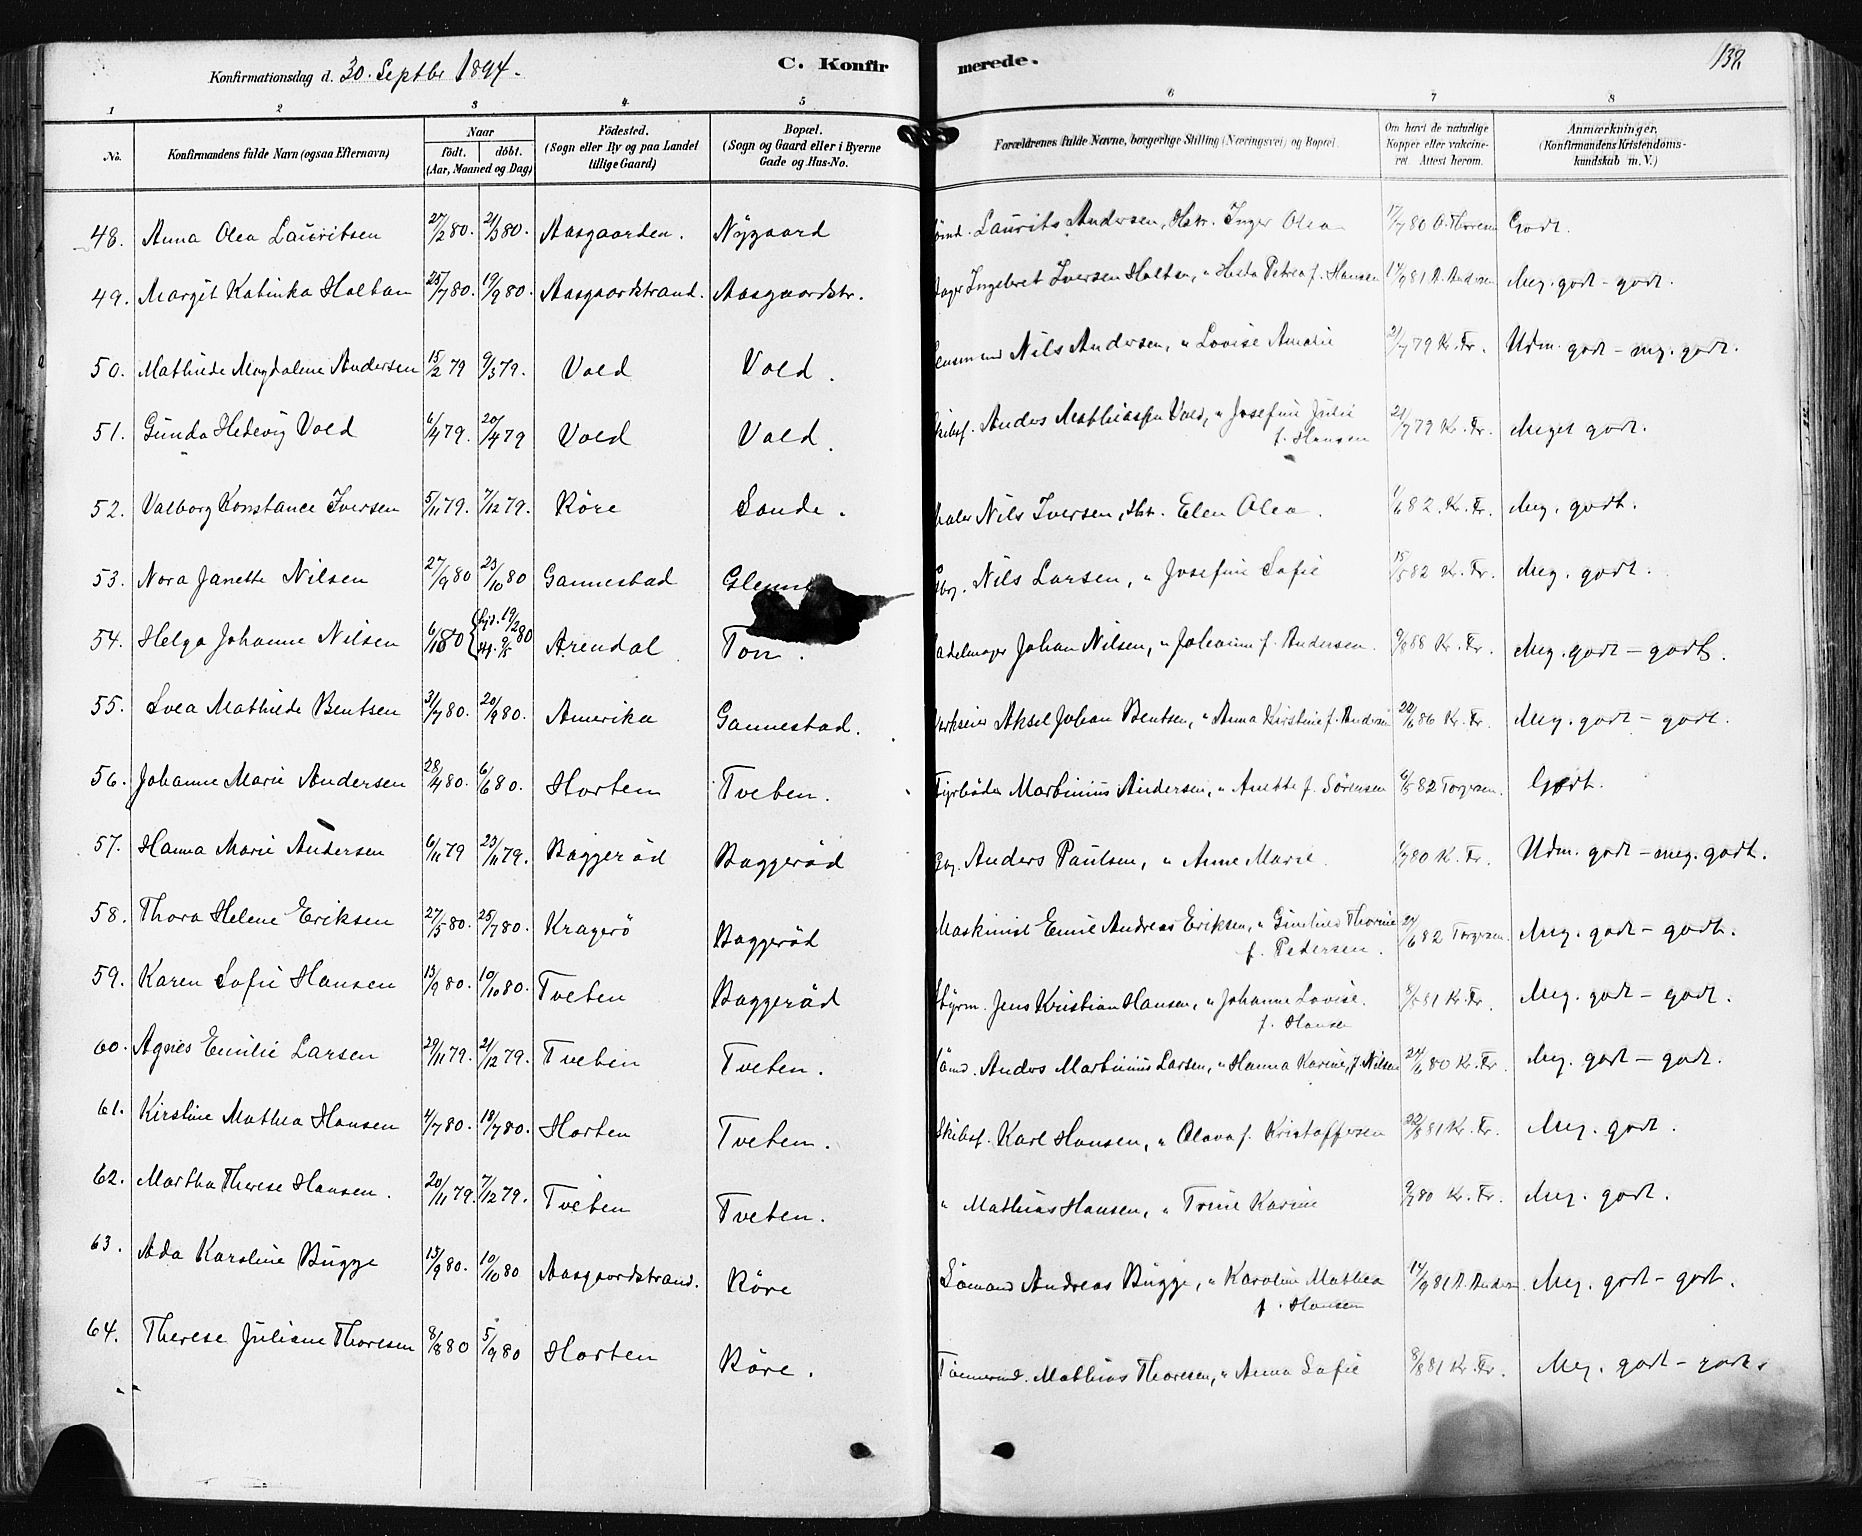 Konfirmationsdag d. 30. Septbr 1894.
C. Konfirmerede.
132
1 2 3 4 5 6 7 8
No.
Konfirmandens fulde Navn (ogsaa Efternavn)
Naar
födt. döbt.
(Aar, Maaned og Dag)
Födested.
(Sogn eller By og paa Landet
tillige Gaard)
Bopæl.
(Sogn og Gaard eller i Byerne
Gade og Hus-No.
Forældrenes fulde Navne, borgerlige Stilling (Næringsvei) og Bopæl.
Om havt de naturlige
Kopper eller vakcine-
ret Attest herom.
Anmærkninger,
(Konfirmandens Kristendoms-
kundskab m. V.)
48. Anna Olea Lauritsen 27/2 80. 21/3 80. Aasgaarden. Nygaard Laurits Andersen, Hstr. Inger Olea 17/7 80 O. Thoresen Godt.
49. Margit Katinka Holtan 25/7 80. 19/9 80. Aasgaardstrand. Aasgaardstr. Ingebret Iversen Holtan, " Hilda Petrea f. Hansen 14/9 81 A. Andersen Meg. godt - godt.
50. Mathilde Magdalene Andersen 15/2 79 9/3 79. Vold Vold. Nils Andersen, " Lovise Amalie 21/7 79 Kr. Fr. Udm. godt - meg. godt.
51. Gunda Hedevig Vold 6/4 79. 20/4 79 Vold Vold. Skibsf. Anders Mathiassen Vold, " Josefine Julie
f. Hansen 21/7 79 Kr. Fr. Meget godt.
52. Valborg Constance Iversen 5/11 79. 7/12 79. Röre Sande. Nils Iversen, Hst. Elen Olea. 1/6 82. Kr. Fr. Meg. godt.
53. Nora Janette Nilsen 27/9 80 23/10 80 Gannestad Glenne Nils Larsen, " Josefine Sofie 15/5 82 Kr. Fr. Meg. godt.
54. Helga Johanne Nilsen 6/1 80 19/2 80 Arendal Ton. Johan Nilsen, " Johanne f. Andersen. 9/8 88 Kr. Fr. Meg. godt - godt.
55. Svea Mathilde Bentsen 31/7 80. 20/9 80. Amerika Gannestad. Aksel Johan Bentsen, " Anna Kirstine f. Andersen 22/6 86 Kr. Fr. Meg. godt - godt.
56. Johanne Marie Andersen 28/4 80. 6/6 80. Horten Tveten. Fyrböder Martinius Andersen, " Anette f. Sörensen 6/5 82 Torgersen. Godt.
57. Hanna Marie Andersen 6/11 79 23/11 79. Baggeröd Baggeröd Anders Paulsen, " Anne Marie. 80 Kr. Fr. Udm. godt - meg. godt.
58. Thora Helene Eriksen 27/5 80. 25/7 80. Kragerö Baggeröd Maskinist Emil Andreas Eriksen, " Gunhild Thorine
f. Pedersen. 24/6 82 Torgersen. Meg. godt - godt.
59. Karen Sofie Hansen 13/9 80. 10/10 80. Tveten Baggeröd Styrm. Jens Kristian Hansen, " Johanne Lovise.
f. Hansen 81 Kr. Fr. Meg. godt - godt.
60. Agnes Emilie Larsen 29/11 79. 21/12 79. Tveten Tveten. Anders Martinius Larsen, " Hanna Karine, f. Nilsen 24/6 80 Kr. Fr. Meg. godt - godt.
61. Kirstine Mathea Hansen 4/7 80. 18/7 80. Horten Tveten. Skibsf. Karl Hansen, " Olava f. Kristoffersen 22/8 81 Kr. Fr. Meg. godt.
62. Martha Therese Hansen. 20/11 79. 7/12 79. Tveten Tveten. " Mathias Hansen, " Trine Karine 9/7 80 Kr. Fr. Meg. godt.
63. Ada Karoline Bugge 13/9 80. 10/10 80 Aasgaardstrand. Röre Sömand Andreas Bugge, " Karoline Mathea
f. Hansen 14/9 81 A. Andersen Meg. godt - godt.
64. Therese Juliane Thoresen 8/8 80 5/9 80 Horten Röre. Tömmermd. Mathias Thoresen, " Anna Sofie 8/8 81 Kr. Fr. Meg. godt - godt.